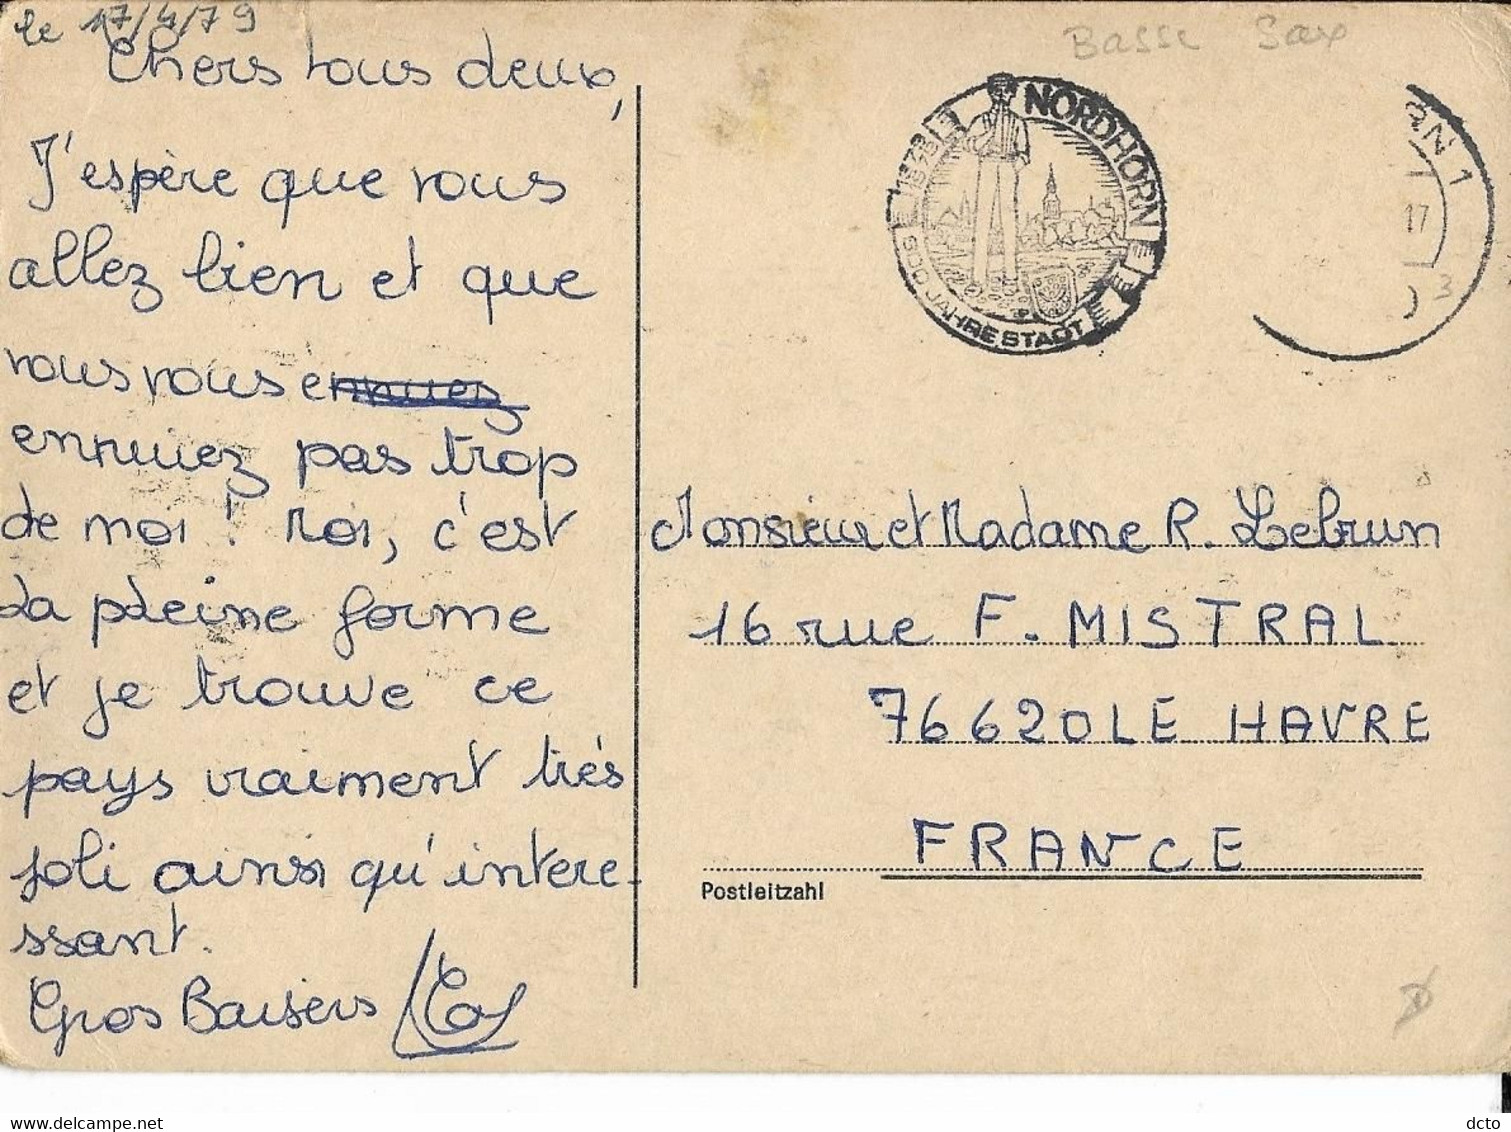 le 17/4/79
Chers tous deux,
J'espère que vous
allez bien et que
vous vous ennuez
ennuiez pas trop
de moi ! Moi, c'est
la pleine forme
et je trouve ce
pays vraiment très
joli ainsi qu'intére-
ssant.
Gros Baisers
Basse Sax
NORDHORN
500 JAHRE STADT
RN 1
17
3
Monsieur et Madame R. Lebrun
16 rue F. MISTRAL
76620 LE HAVRE
FRANCE
Postleitzahl
delcampe.net
dcto